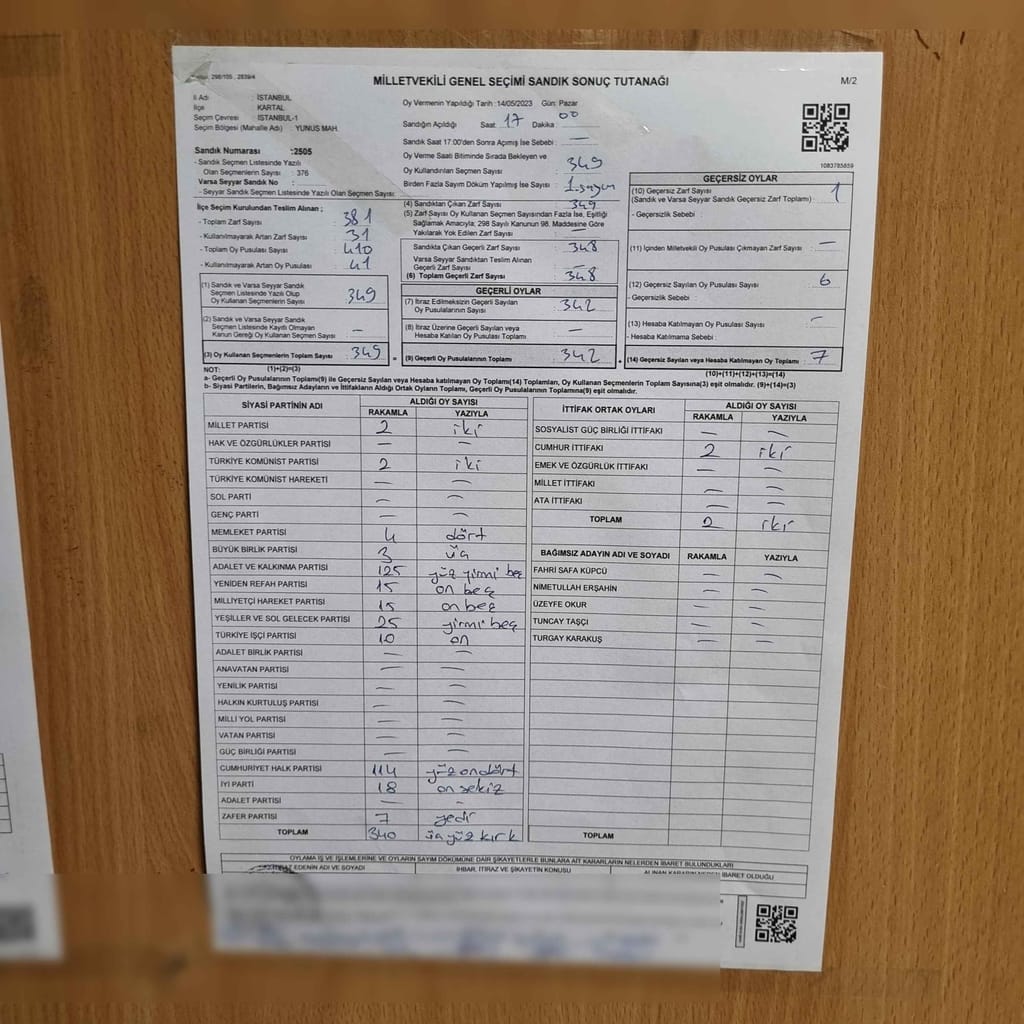 MİLLETVEKİLİ GENEL SEÇİMİ SANDIK SONUÇ TUTANAĞI
M/2
298/105 , 2839/4
İl Adı : İSTANBUL
İlçe KARTAL
Seçim Çevresi : İSTANBUL-1
Seçim Bölgesi (Mahalle Adı) : YUNUS MAH.
Sandık Numarası :2505
- Sandık Seçmen Listesinde Yazılı
Olan Seçmenlerin Sayısı : 376
Varsa Seyyar Sandık No :
- Seyyar Sandık Seçmen Listesinde Yazılı Olan Seçmen Sayısı:
Oy Vermenin Yapıldığı Tarih :14/05/2023 Gün: Pazar
Sandığın Açıldığı Saat: 17 Dakika : 00
Sandık Saat 17.00'den Sonra Açımış İse Sebebi : —
Oy Verme Saati Bitiminde Sırada Bekleyen ve
Oy Kullandırılan Seçmen Sayısı : 349
Birden Fazla Sayım Döküm Yapılmış İse Sayısı : 1. sayım
1083785859
İlçe Seçim Kurulundan Teslim Alınan ;
- Toplam Zarf Sayısı : 381
- Kullanılmayarak Artan Zarf Sayısı : 31
- Toplam Oy Pusulası Sayısı : 410
- Kullanılmayarak Artan Oy Pusulası : 41
(1) Sandık ve Varsa Seyyar Sandık
Seçmen Listesinde Yazılı Olup
Oy Kullanan Seçmenlerin Sayısı : 349
(2) Sandık ve Varsa Seyyar Sandık
Seçmen Listesinde Kayıtlı Olmayan
Kanun Gereği Oy Kullanan Seçmen Sayısı : —
(3) Oy Kullanan Seçmenlerin Toplam Sayısı : 349
(1)+(2)=(3)
(4) Sandıktan Çıkan Zarf Sayısı : 349
(5) Zarf Sayısı Oy Kullanan Seçmen Sayısından Fazla İse, Eşitliği
Sağlamak Amacıyla; 298 Sayılı Kanunun 98. Maddesine Göre
Yakılarak Yok Edilen Zarf Sayısı : —
Sandıkta Çıkan Geçerli Zarf Sayısı : 348
Varsa Seyyar Sandıktan Teslim Alınan
Geçerli Zarf Sayısı : —
(6) Toplam Geçerli Zarf Sayısı : 348
GEÇERLİ OYLAR
(7) İtiraz Edilmeksizin Geçerli Sayılan
Oy Pusulalarının Sayısı : 342
(8) İtiraz Üzerine Geçerli Sayılan veya
Hesaba Katılan Oy Pusulaları Toplamı : —
= (9) Geçerli Oy Pusulalarının Toplamı : 342
GEÇERSİZ OYLAR
(10) Geçersiz Zarf Sayısı : 1
(Sandık ve Varsa Seyyar Sandık Geçersiz Zarf Toplamı)
- Geçersizlik Sebebi :
(11) İçinden Milletvekili Oy Pusulası Çıkmayan Zarf Sayısı : —
(12) Geçersiz Sayılan Oy Pusulası Sayısı : 6
- Geçersizlik Sebebi :
(13) Hesaba Katılmayan Oy Pusulası Sayısı : —
- Hesaba Katılmama Sebebi :
+ (14) Geçersiz Sayılan veya Hesaba Katılmayan Oy Toplamı : 7
(10)+(11)+(12)+(13)=(14)
NOT:
a- Geçerli Oy Pusulalarının Toplamı(9) ile Geçersiz Sayılan veya Hesaba katılmayan Oy Toplamı(14) Toplamları, Oy Kullanan Seçmenlerin Toplam Sayısına(3) eşit olmalıdır. (9)+(14)=(3)
b- Siyasi Partilerin, Bağımsız Adayların ve İttifakların Aldığı Ortak Oyların Toplamı, Geçerli Oy Pusulalarının Toplamına(9) eşit olmalıdır.
SİYASİ PARTİNİN ADI ALDIĞI OY SAYISI
RAKAMLA YAZIYLA
MİLLET PARTİSİ 2 iki
HAK VE ÖZGÜRLÜKLER PARTİSİ — —
TÜRKİYE KOMÜNİST PARTİSİ 2 iki
TÜRKİYE KOMÜNİST HAREKETİ — —
SOL PARTİ — —
GENÇ PARTİ — —
MEMLEKET PARTİSİ 4 dört
BÜYÜK BİRLİK PARTİSİ 3 üç
ADALET VE KALKINMA PARTİSİ 125 yüz yirmi beş
YENİDEN REFAH PARTİSİ 15 on beş
MİLLİYETÇİ HAREKET PARTİSİ 15 on beş
YEŞİLLER VE SOL GELECEK PARTİSİ 25 yirmi beş
TÜRKİYE İŞÇİ PARTİSİ 10 on
ADALET BİRLİK PARTİSİ — —
ANAVATAN PARTİSİ — —
YENİLİK PARTİSİ — —
HALKIN KURTULUŞ PARTİSİ — —
MİLLİ YOL PARTİSİ — —
VATAN PARTİSİ — —
GÜÇ BİRLİĞİ PARTİSİ — —
CUMHURİYET HALK PARTİSİ 114 yüz on dört
İYİ PARTİ 18 on sekiz
ADALET PARTİSİ — —
ZAFER PARTİSİ 7 yedi
TOPLAM 340 üç yüz kırk
İTTİFAK ORTAK OYLARI ALDIĞI OY SAYISI
RAKAMLA YAZIYLA
SOSYALİST GÜÇ BİRLİĞİ İTTİFAKI — —
CUMHUR İTTİFAKI 2 iki
EMEK VE ÖZGÜRLÜK İTTİFAKI — —
MİLLET İTTİFAKI — —
ATA İTTİFAKI — —
TOPLAM 2 iki
BAĞIMSIZ ADAYIN ADI VE SOYADI RAKAMLA YAZIYLA
FAHRİ SAFA KÜPCÜ — —
NİMETULLAH ERŞAHİN — —
ÜZEYFE OKUR — —
TUNCAY TAŞÇI — —
TURGAY KARAKUŞ — —
TOPLAM
OYLAMA İŞ VE İŞLEMLERİNE VE OYLARIN SAYIM DÖKÜMÜNE DAİR ŞİKAYETLERLE BUNLARA AİT KARARLARIN NELERDEN İBARET BULUNDUKLARI
İTİRAZ EDENİN ADI VE SOYADI İHBAR, İTİRAZ VE ŞİKAYETİN KONUSU ALINAN KARARIN NEDEN İBARET OLDUĞU